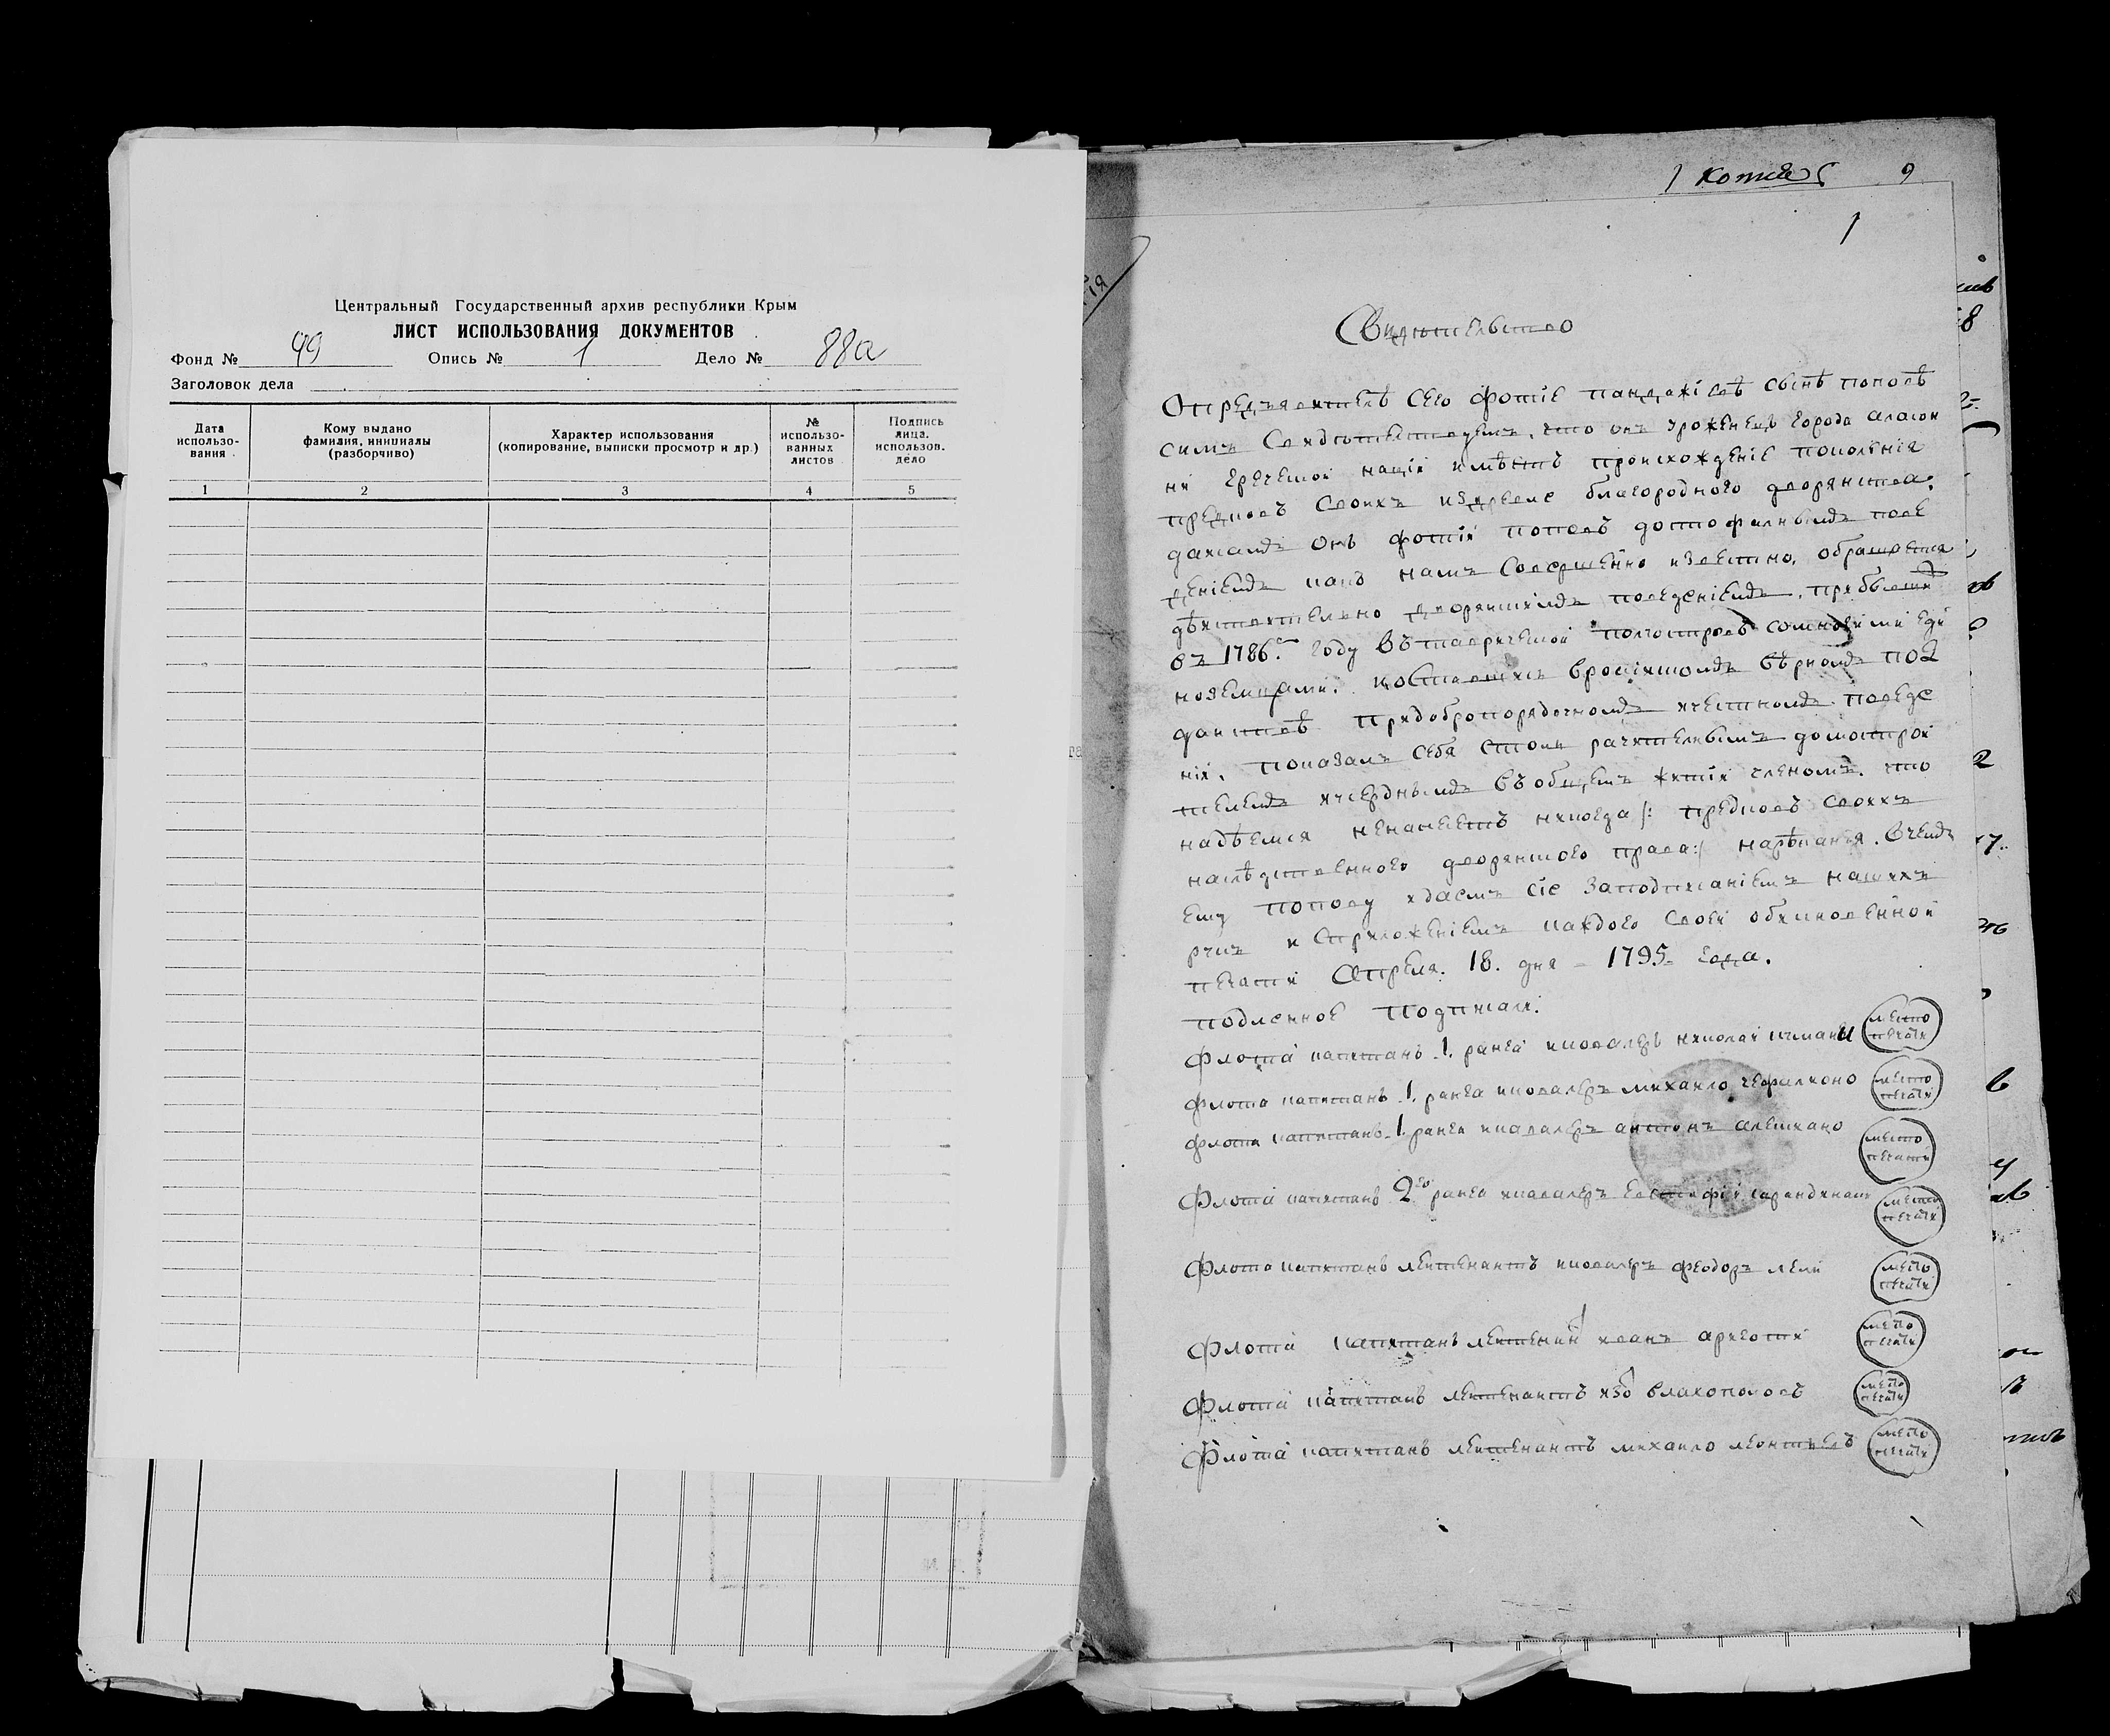 Центральный Государственный архив республики Крым
ЛИСТ ИСПОЛЬЗОВАНИЯ ДОКУМЕНТОВ
Фонд № 49 Опись № 1 Дело № 88а
Заголовок дела
Дата использо-вания
Кому выдано фамилия, инициалы (разборчиво)
Характер использования (копирование, выписки просмотр и др.)
№ использо-ванных листов
Подпись лица, использов. дело
1 2 3 4 5
копия 9
1
Свидѣтельство
Определителъ Сего фотіе сынъ поповъ
симъ Свидѣтельствуемъ, что онъ уроженецъ города
ни греческой націи имѣетъ происхожденіе поколенія
предковъ своихъ издревле благородного дворянства.
онъ фотій поповъ достофалнымъ пове
деніемъ какъ намъ Совершенно известно, обращается
дѣйствительно дворянскимъ поведеніемъ, прибывши
въ 1786м году Въ таврической полуостровъ сомногими еди
ноземцами. вросійскомъ вѣрномъ под
данствѣ придобропорядочномъ ичестномъ поведе
ніи, показалъ себя столь рачительнымъ домострои
телемъ иусерднымъ въ общемъ житіи членомъ. что
надѣемся ненанесетъ никогда /: предковъ своихъ
наслѣдственного дворянского права:/ нарѣканія. Вчемъ
ему попову идаемъ сіе Заподписаніемъ нашихъ
рукъ и Сприложеніемъ каждого своей обыкновенной
печати Апреля. 18. дня - 1795- года.
подленное подписали:
Флота капитанъ 1. ранга икавалеръ николай кумани место печати
Флота капитанъ 1. ранга икавалеръ михаило чефалионо место печати
флота капитанъ 1. ранга икавалеръ антонъ алексиано место печати
Флота капитанъ 2го ранга икавалеръ Евстафій сарандинаки место печати
Флота капитанъ лейтенантъ икавалеръ феодоръ лели место печати
Флота капитанъ лейтенан иванъ арготи место печати
Флота капитанъ лейтенантъ изо влахопоповъ место печати
Флота капитанъ лейтенантъ михаило леонтьевъ место печати